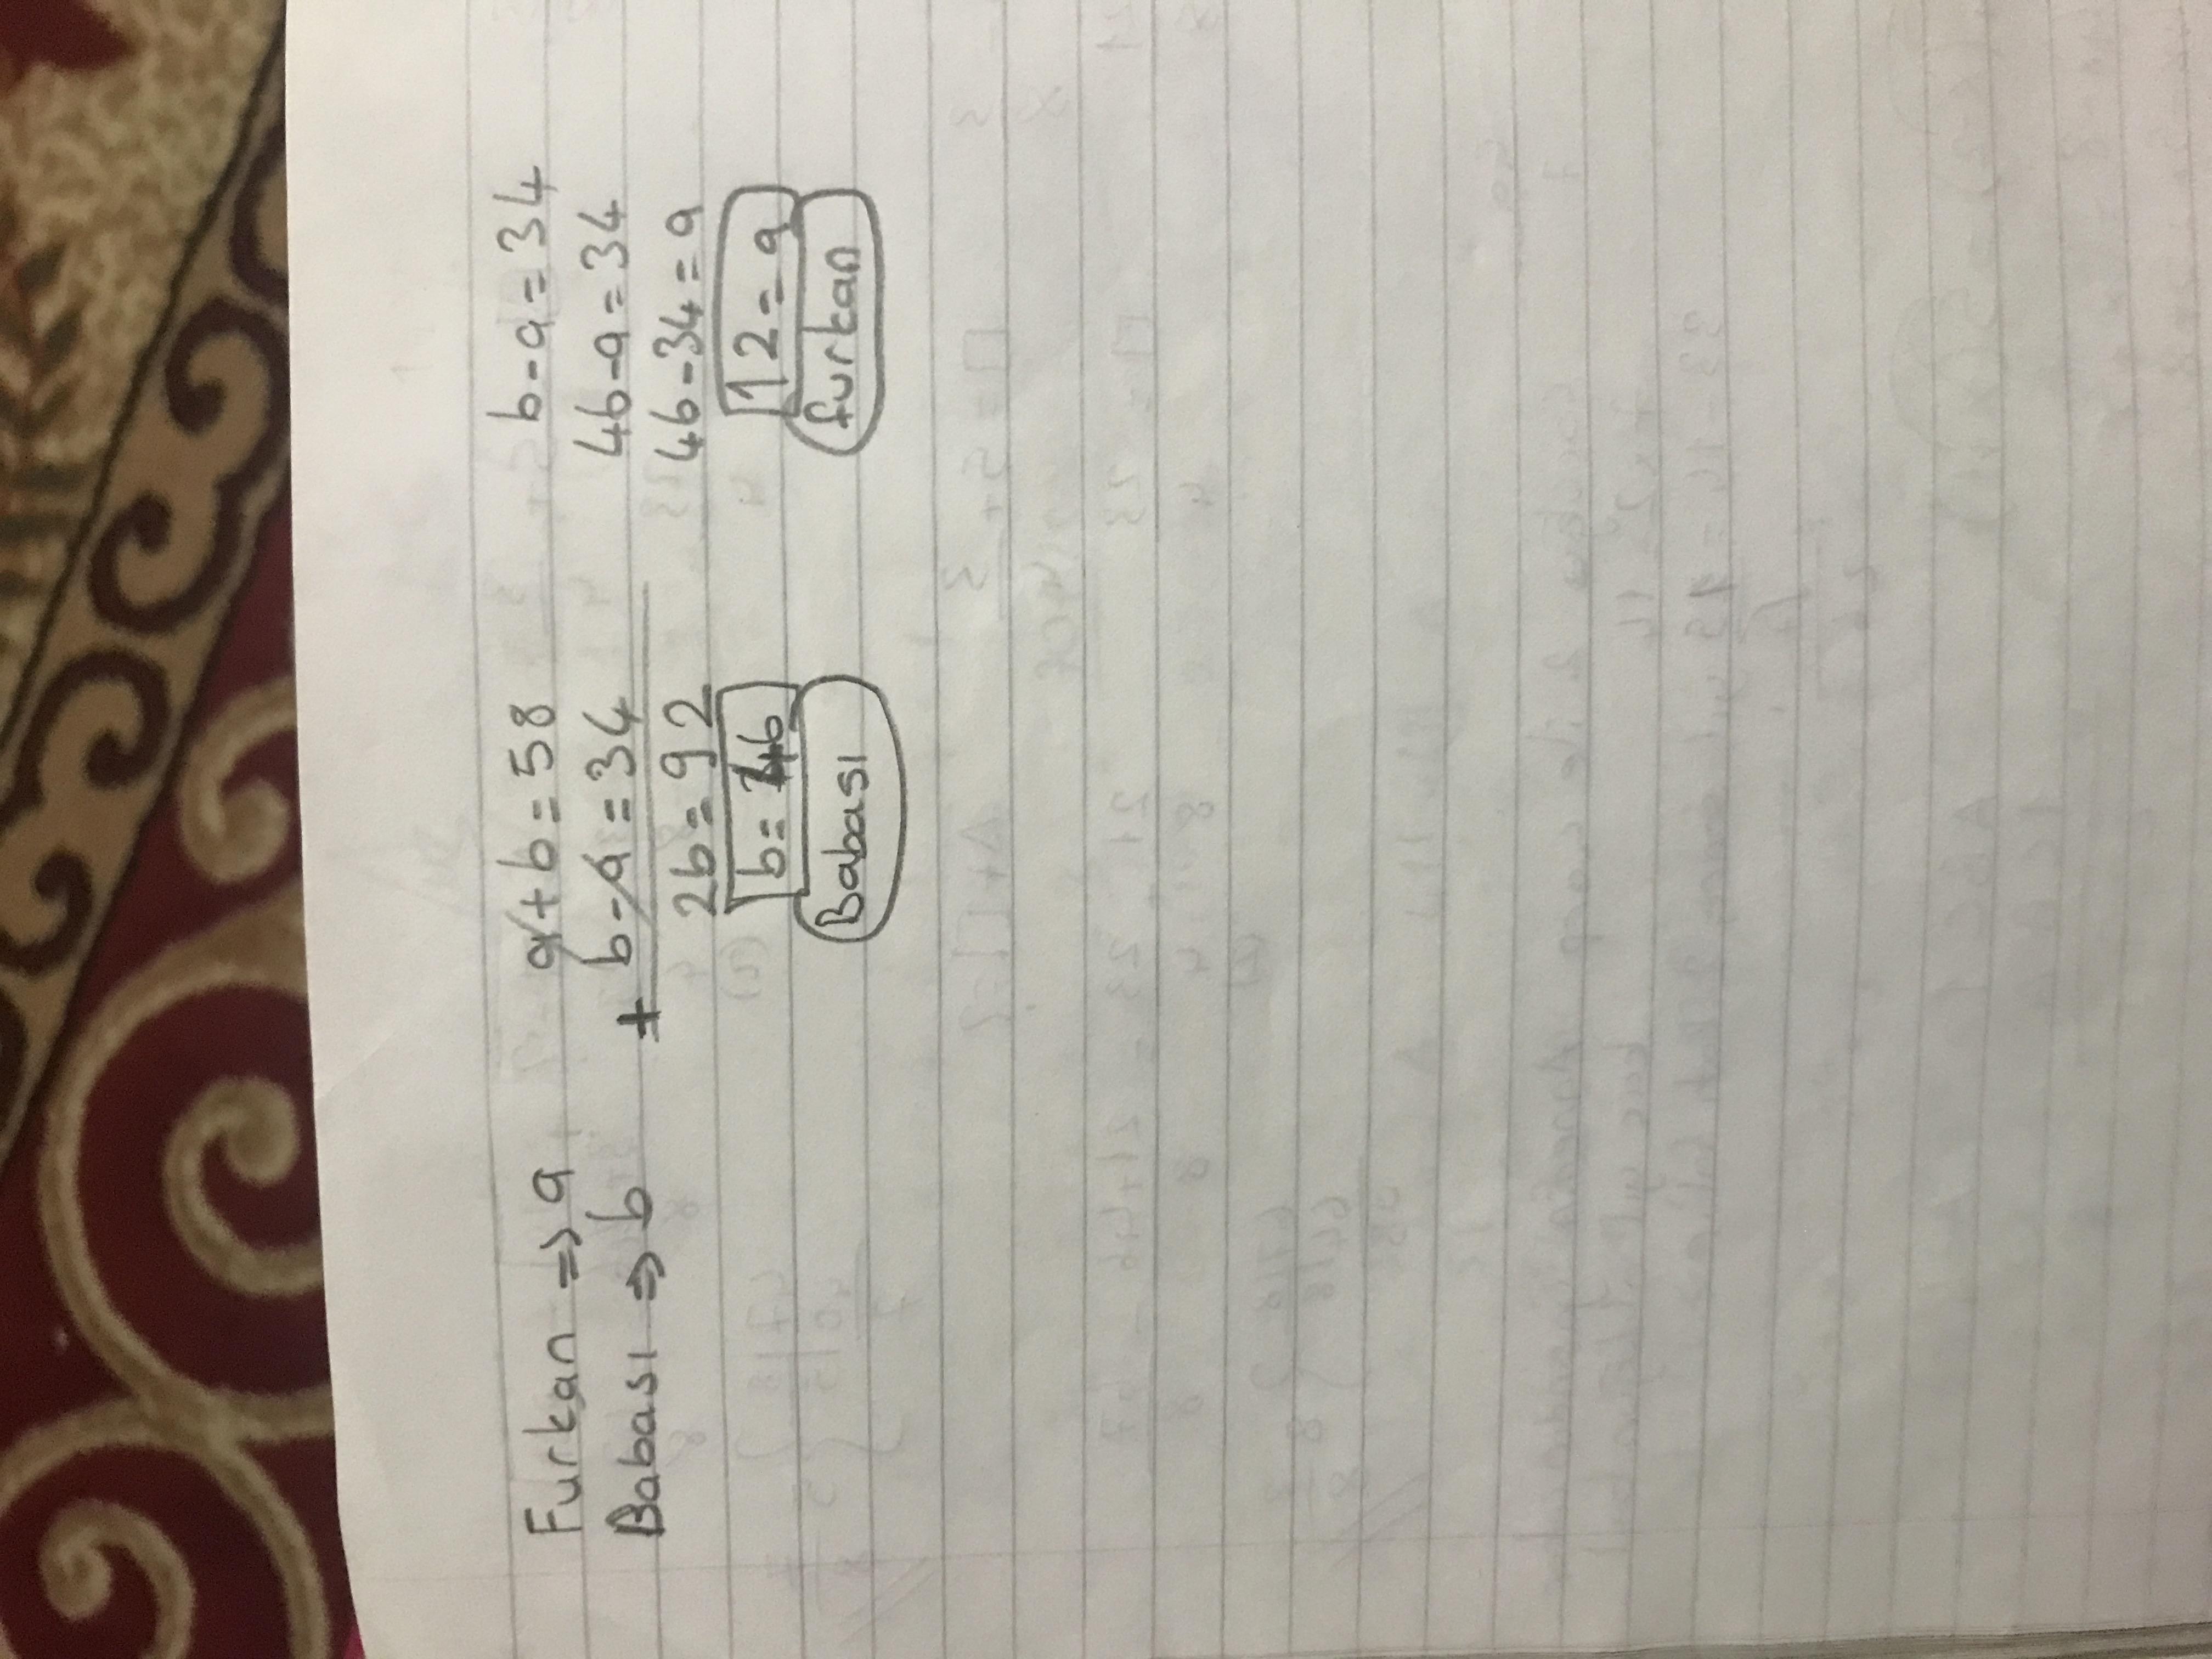 Furkan => a
Babası => b
a + b = 58
+ b - a = 34
2b = 92
b = 46
Babası
b - a = 34
46 - a = 34
46 - 34 = a
12 = a
furkan